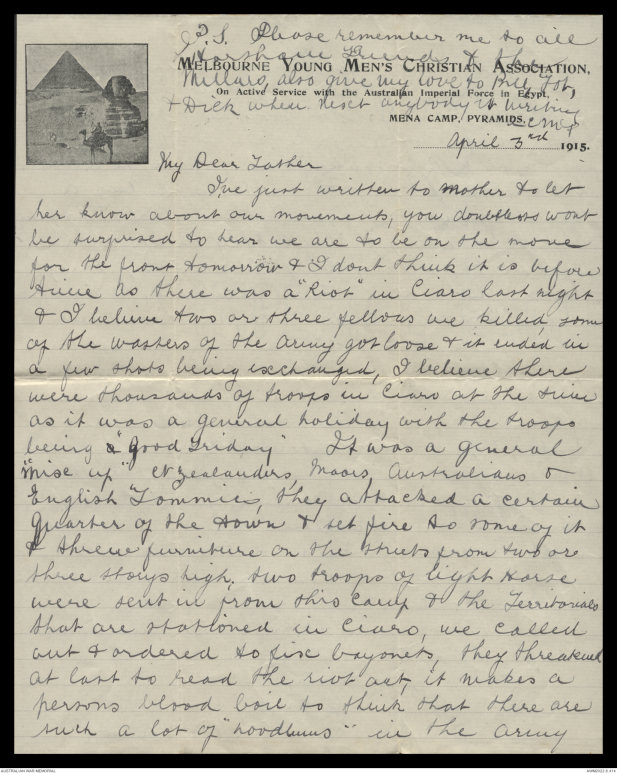 P.S. Please remember me to all
Horsham friends & the
MELBOURNE YOUNG MEN'S CHRISTIAN ASSOCIATION,
Millars, also give my love to Bill, Dot,
On Active Service with the Australian Imperial Force in Egypt.
& Dick when next anybody is writing
MENA CAMP, PYRAMIDS.
April 3rd 1915.
My Dear Father
I've just written to mother to let
her know about our movements, you doubtless wont
be surprised to hear we are to be on the move
for the front tomorrow & I dont think it is before
time as there was a "Riot" in Ciaro last night
& I believe two or three fellows we killed, some
of the wasters of the army got loose & it ended in
a few shots being exchanged, I believe there
were thousands of troops in Ciaro at the time
as it was a general holiday with the troops
being "good Friday" It was a general
"mise up" N Zealanders, Maoris, Australians &
English Tommies, they attacked a certain
quarter of the town & set fire to some of it
& threw furniture on the streets from two or
three storys high, two troops of light Horse
were sent in from this camp & the Territorials
that are stationed in Ciaro, we called
out & ordered to fix bayonets, they threatened
at last to read the riot act, it makes a
persons blood boil to think that there are
such a lot of "hoodlums" in the army
AUSTRALIAN WAR MEMORIAL